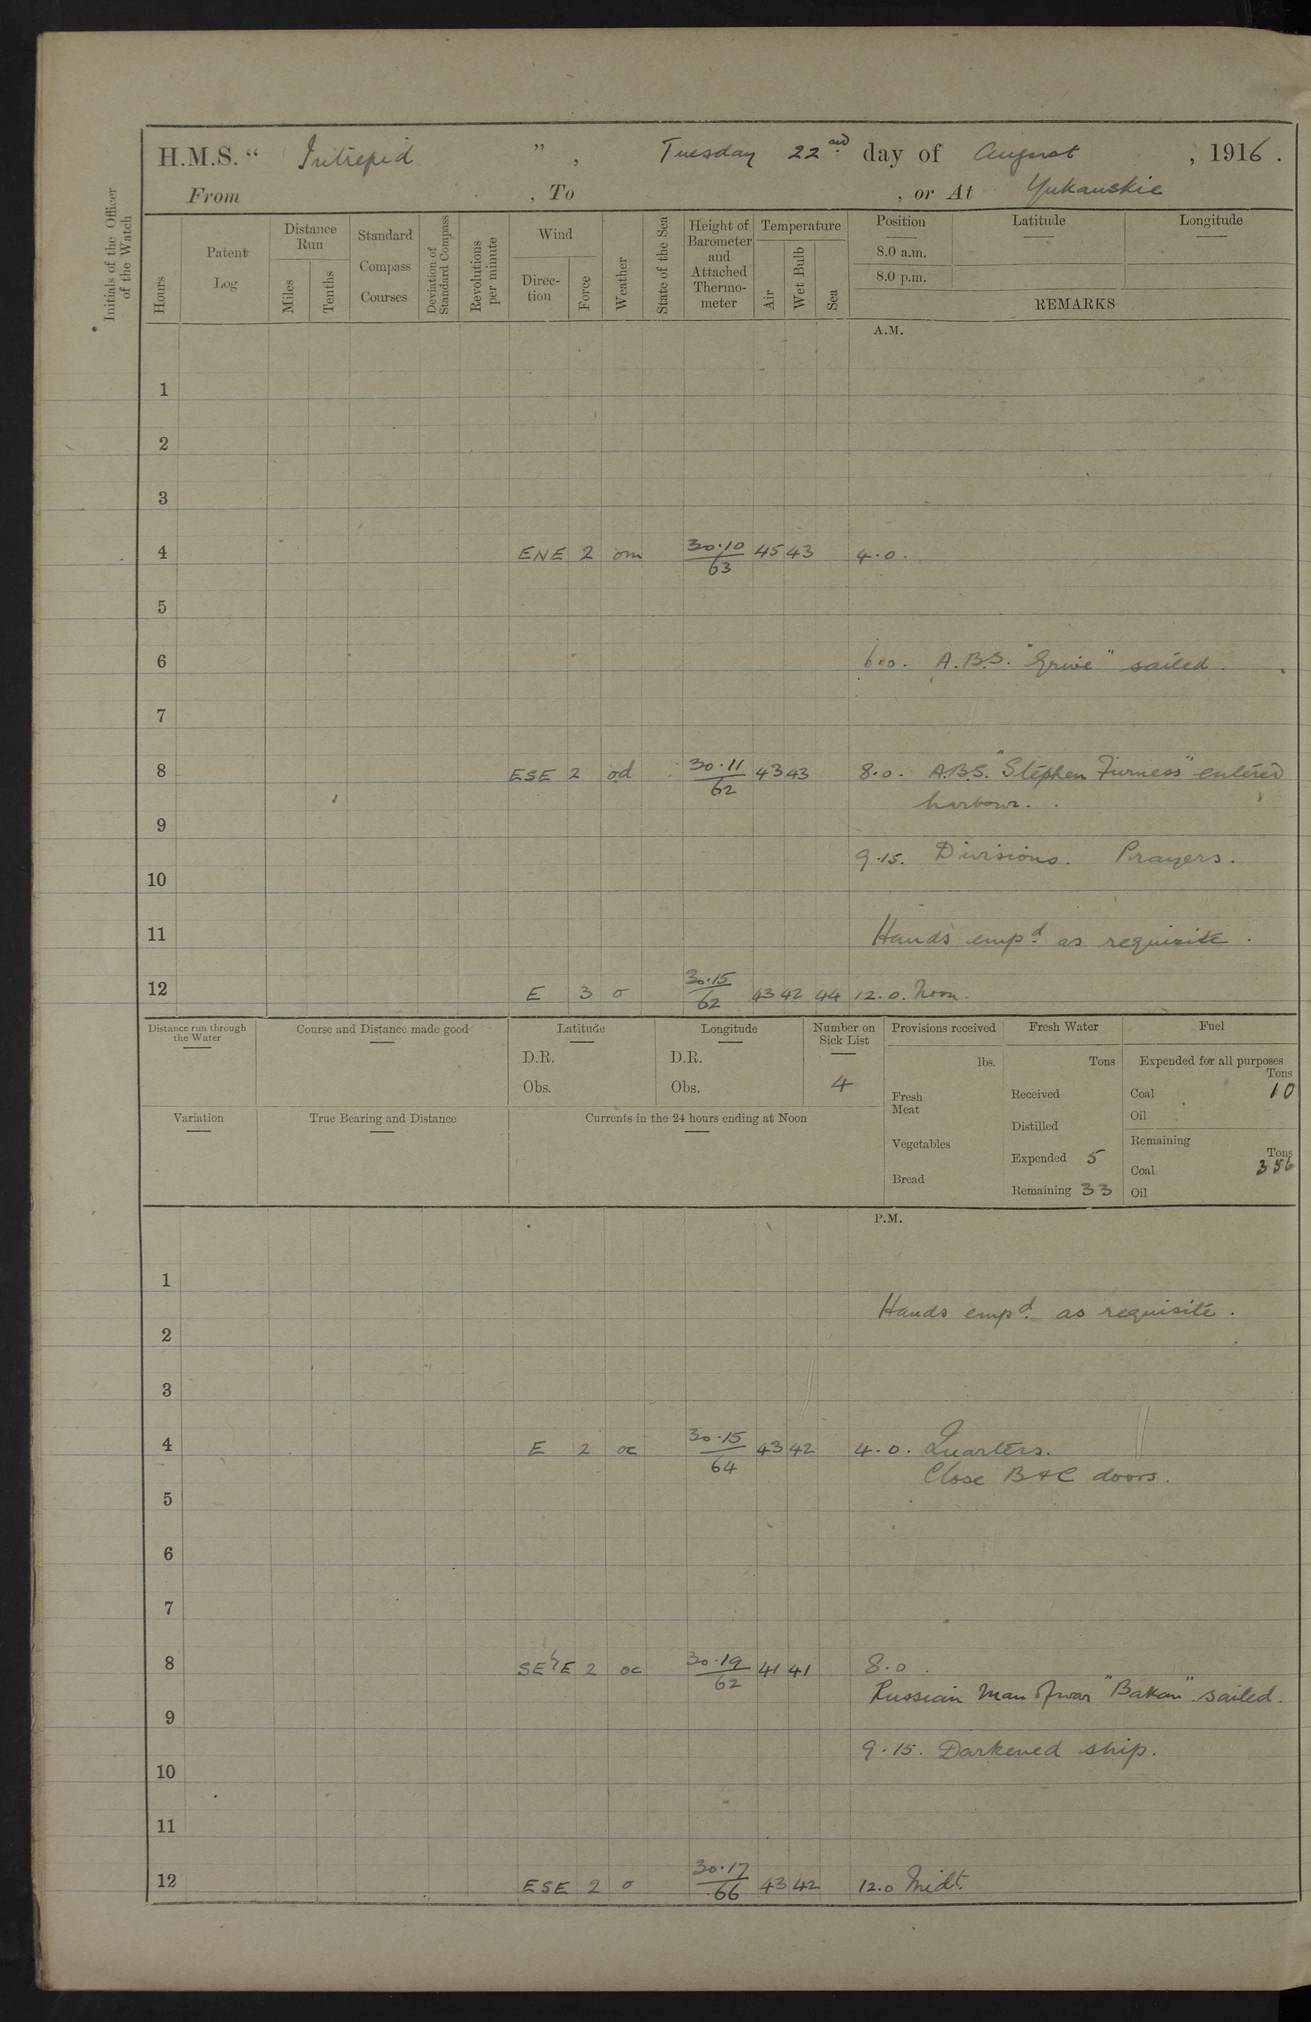 H.M.S. “ Intrepid ” , Tuesday 22nd day of August , 1916 .
From , To , or At Yukanskie
Initials of the Officer of the Watch
Hours
Patent Log
Distance Run
Miles
Tenths
Standard Compass Courses
Deviation of Standard Compass
Revolutions per minute
Wind
Direc-tion
Force
Weather
State of the Sea
Height of Barometer and Attached Thermo-meter
Temperature
Air
Wet Bulb
Sea
Position Latitude Longitude
8.0 a.m.
8.0 p.m.
REMARKS
A.M.
1
2
3
4 ENE 2 om 30·10/63 45 43 4.0.
5
6 6.0. A.B.S. "Grive" sailed.
7
8 ESE 2 od 30·11/62 43 43 8.0. A.B.S. "Stephen Furness" entered
harbour.
9
9.15. Divisions. Prayers.
10
11 Hands empd. as requisite.
12 E 3 o 30·15/62 43 42 44 12.0. Noon.
Distance run through the Water
Course and Distance made good
Latitude
D.R.
Obs.
Longitude
D.R.
Obs.
Number on Sick List
4
Provisions received
lbs.
Fresh Meat
Vegetables
Bread
Fresh Water
Tons
Received
Distilled
Expended 5
Remaining 33
Fuel
Expended for all purposes
Tons
Coal 10
Oil
Remaining
Tons
Coal 356
Oil
Variation
True Bearing and Distance
Currents in the 24 hours ending at Noon
P.M.
1
Hands empd. as requisite.
2
3
4 E 2 oc 30·15/64 43 42 4.0. Quarters.
Close B & C doors.
5
6
7
8 SE'E 2 oc 30·19/62 41 41 8.0.
Russian Man of war "Bakan" sailed.
9
9.15. Darkened ship.
10
11
12 ESE 2 o 30·17/66 43 42 12.0 Midt.